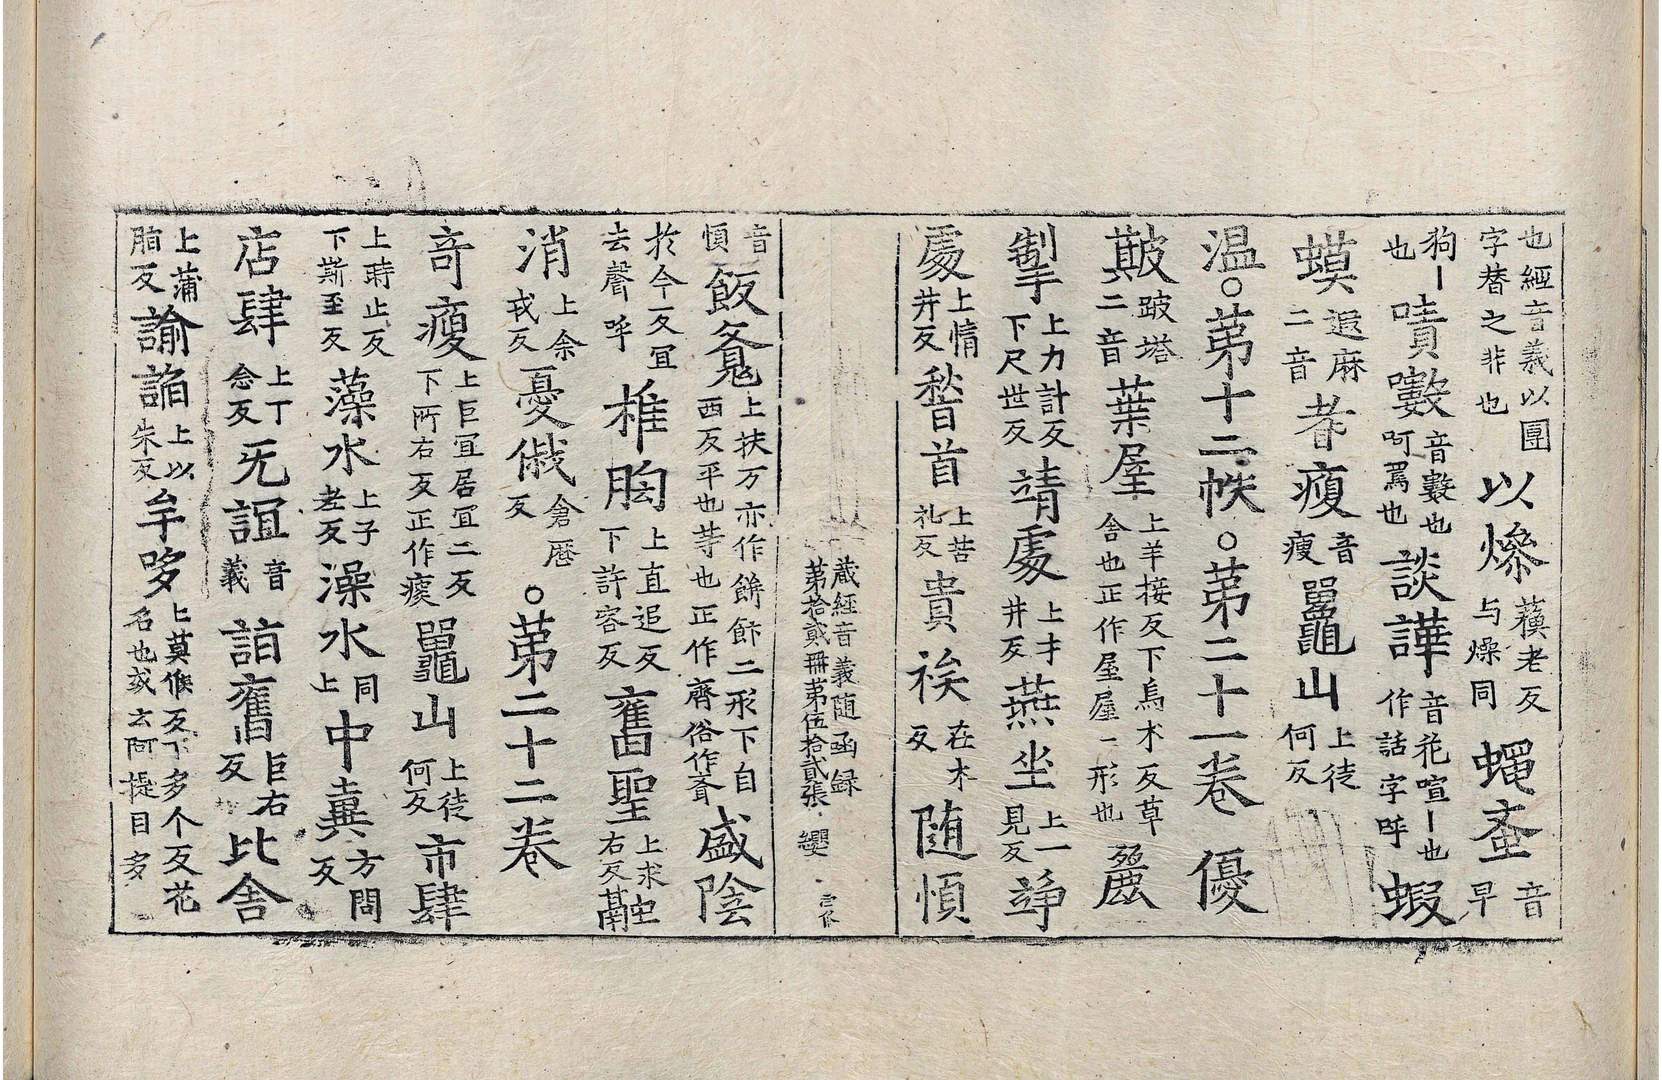 也經音義以團字替之非也以㷮蘓老反与燥同蠅蚤音早
狗丨也嘖㘔音數也呵罵也談譁音花喧丨也作話字呼蝦
蟆遐麻二音者瘦音瘦鼉山上徒何反
温○苐十二帙○苐二十一卷優
皽跛塔二音葉屋上羊接反下烏木反草舍也正作屋屋一形也
掣上力計反下尺世反靖處上才井反燕坐上一見反諍
處上情井反𩒨首上苦礼反貴族在木反随慎
蔵經音義随函録苐拾貳冊苐伍拾貳張 纓
音慎飯㲋上扶万亦作餅飰二形下自西反平也䓁也正作齊俗作斉盛陰
扵今反宜去聲呼椎胷上直追反下許容反舊聖上求右反
消上余戎反憂㦲倉歷反○苐二十二卷
竒瘦上巨宜居宜二反下所右反正作瘐鼉山上徒何反市肆
上蒔止反下斯至反藻水上子老反澡水同上中糞方問反
店肆上丁念反旡誼音義詣舊巨右反比舍
上蒲脂反諭詣上以朱反牟哆上莫侯反下多个反花名也或云阿提目多